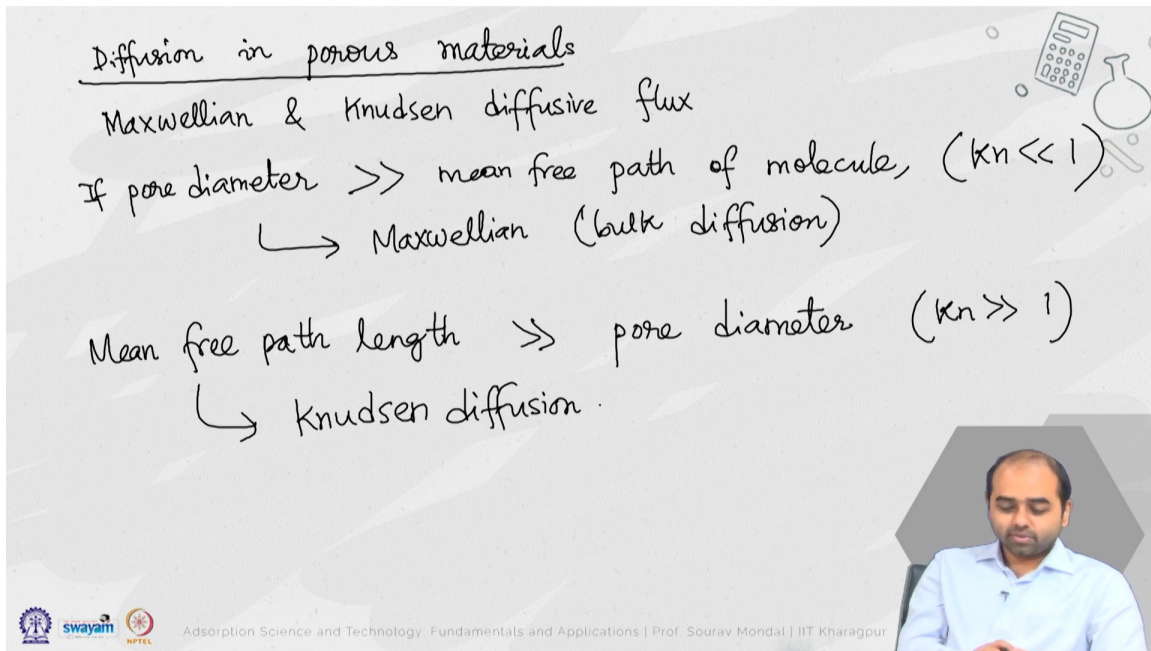 Diffusion in porous materials
Maxwellian & Knudsen diffusive flux
If pore diameter >> mean free path of molecule, (Kn << 1)
Maxwellian (bulk diffusion)
Mean free path length >> pore diameter (Kn >> 1)
Knudsen diffusion.
swayam
NPTEL
Adsorption Science and Technology: Fundamentals and Applications | Prof. Sourav Mondal | IIT Kharagpur